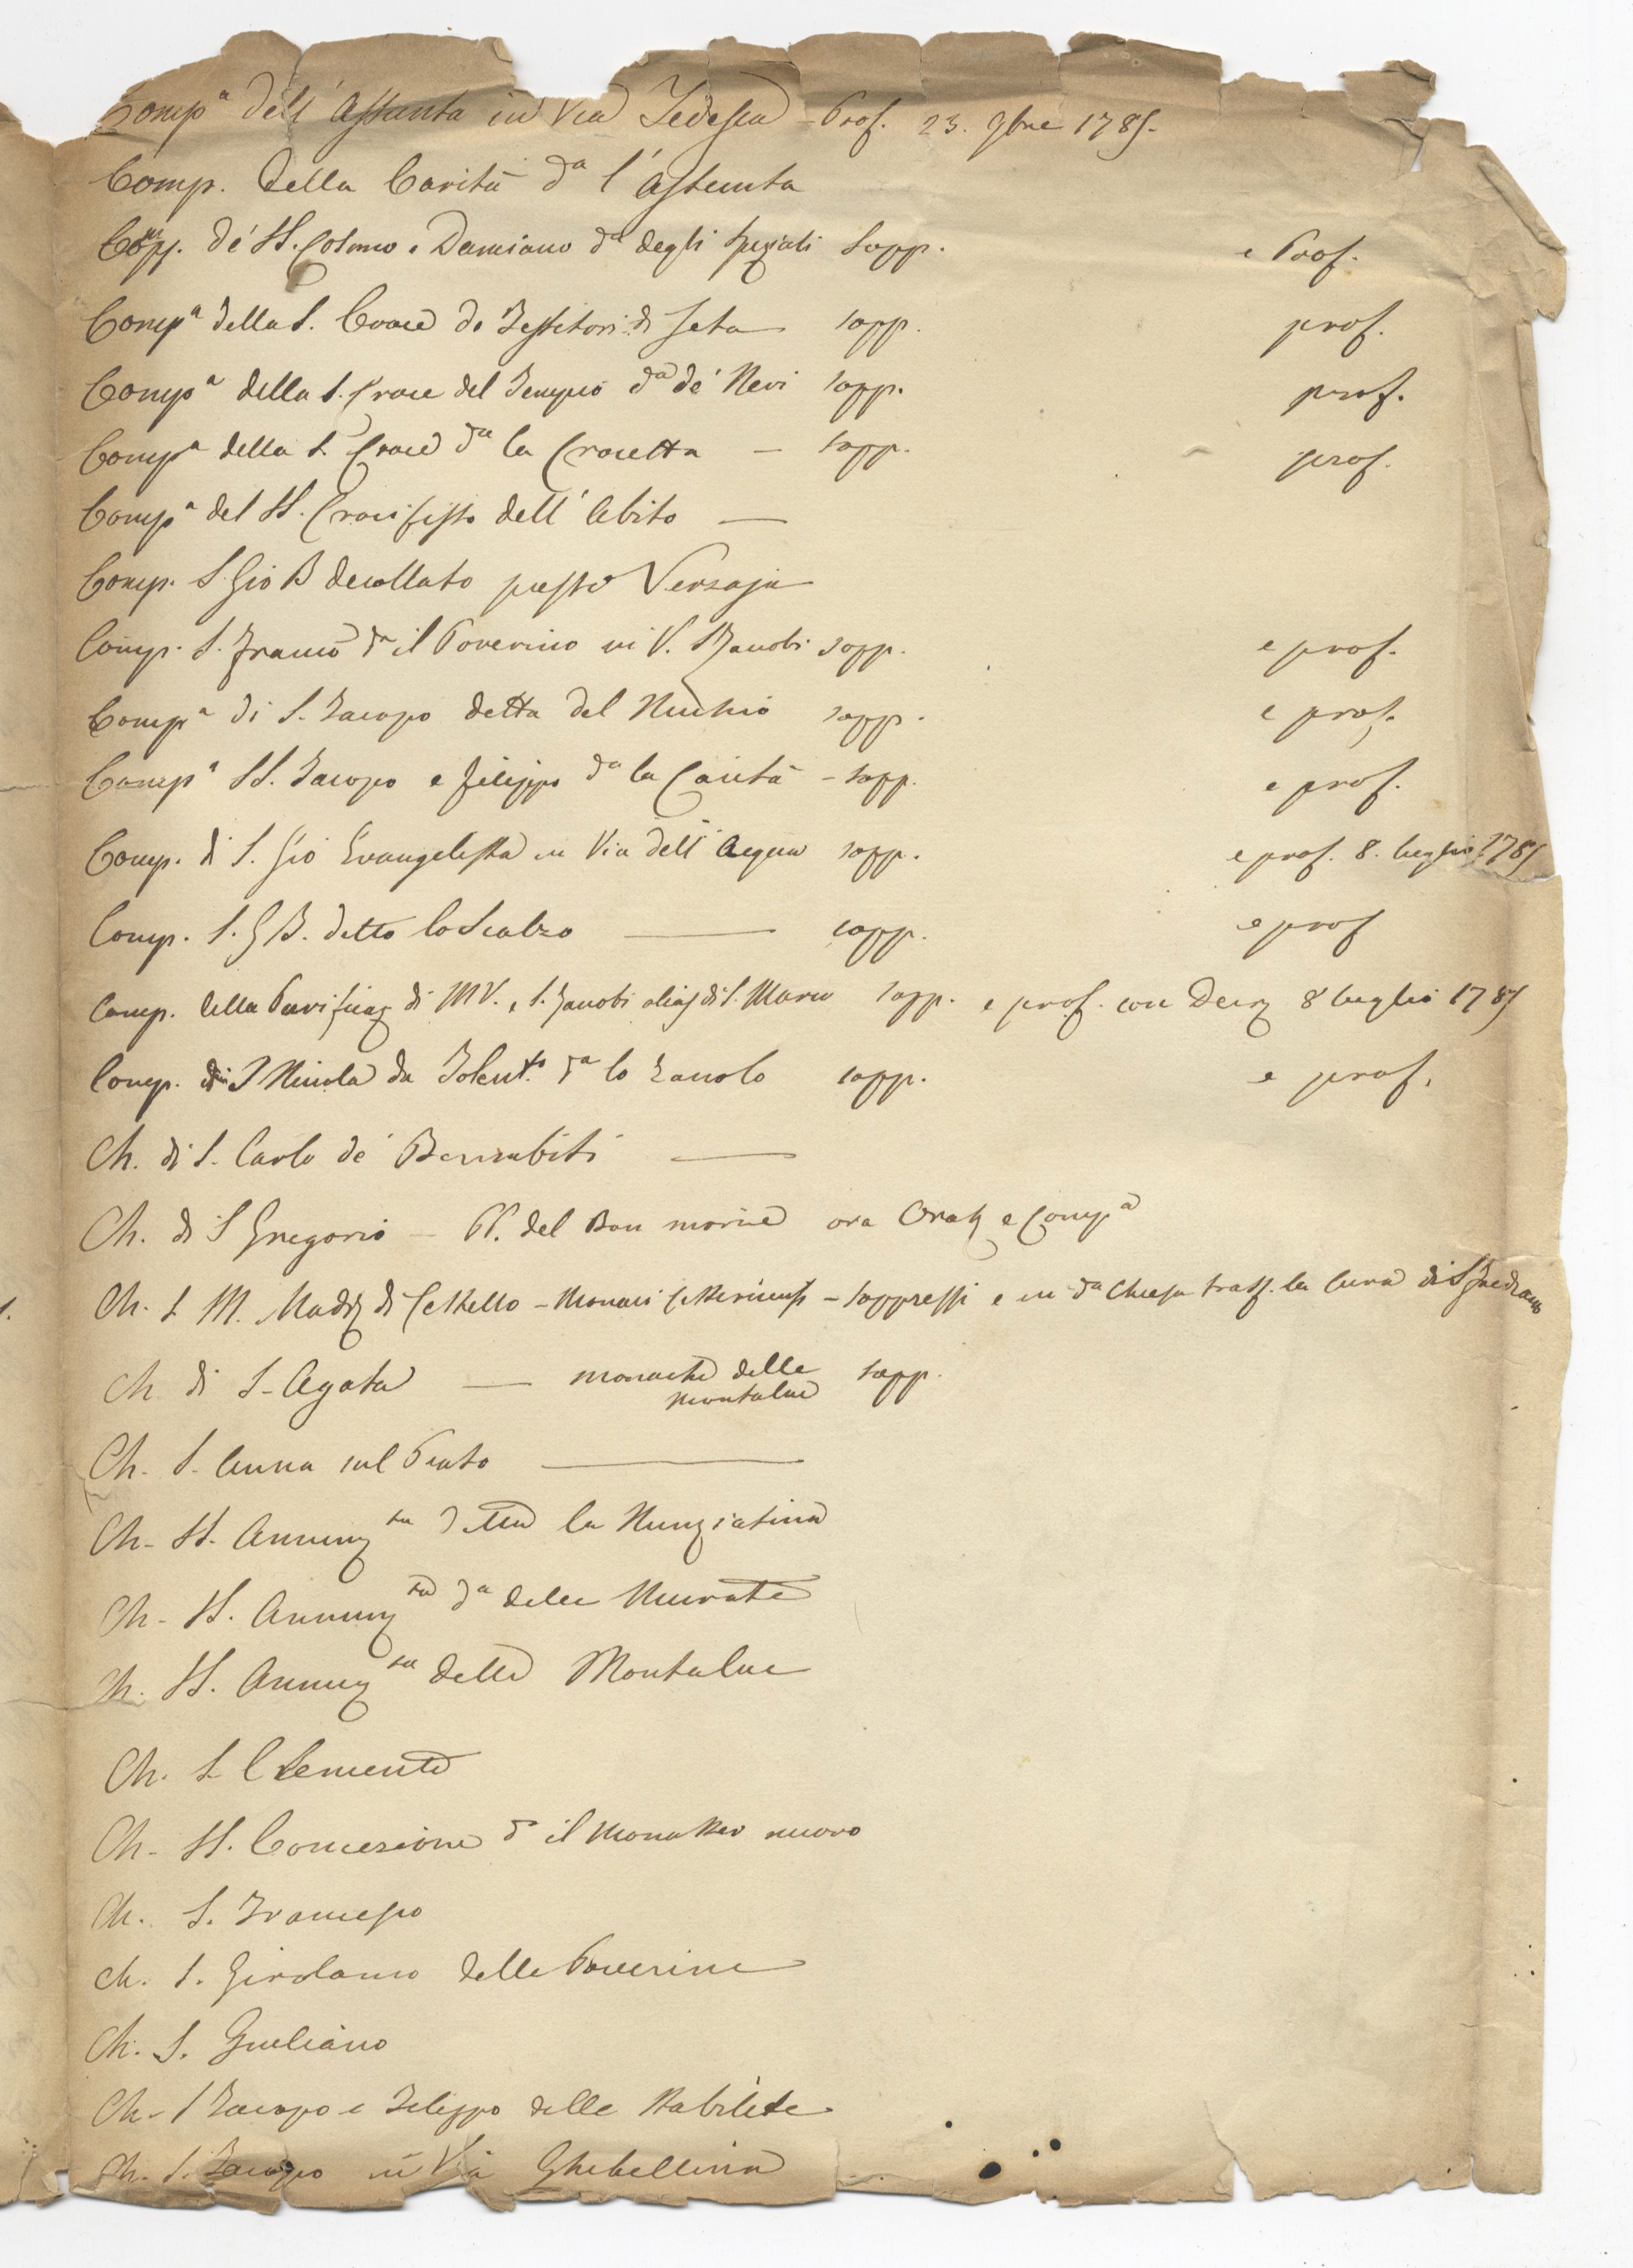 Comp.ª dell' Assunta in Via Tedesca - Prof. 23. 9bre 1785.
Comp. della Carità dª l'Assunta
Comp. de' SS. Cosimo e Damiano dª degli Speziali sopp. e Prof.
Compª della S. Croce de Tessitori di Seta sopp. prof.
Compª della S. Croce del Tempio dª de' Neri sopp. prof.
Compª della S. Croce dª la Crocetta — sopp. prof.
Compª del SS. Crocifisso dell' Abito —
Comp. S. Gio B decollato presso Verzaja
Comp. S. Franco dª il Poverino in V. S Zanobi sopp. e prof.
Compª di S. Jacopo detta del Nicchio sopp. e prof.
Compª SS. Jacopo e Filippo dª la Carità - sopp. e prof.
Comp. di S. Gio Evangelista in Via dell' Acqua sopp. e prof. 8. luglio 1785
Comp. S. G B. detto lo Scalzo — sopp. e prof
Comp. della Purificaz di MV. e S. Zanobi alias di S. Marco sopp. e prof. con Decr 8 luglio 1785
Comp. di S Nicola da Tolent.º dª lo sopp. e prof.
Ch. di S. Carlo de' Barnabiti —
Ch. di S Gregorio — PP. del Ben morire ora Orat e Compª
Ch. S M. Madd di Cestello - Monaci Cisterciensi - soppressi e in dª Chiesa trasf. la Cura di S Frediano
Ch di S. Agata — monache delle sopp.
montalve
Ch. S. Anna sul Prato —
Ch. SS. Annunzta detta la Nunziatina
Ch. SS. Annunzta dª delle Murate
Ch. SS. Annunzta delle Montalve
Ch. S. Clemente
Ch. SS. Concezione dº il Monaster nuovo
Ch. S. Francesco
Ch. S. Girolamo delle Poverine
Ch. S. Giuliano
Ch. S Jacopo e Filippo delle Stabilite
Ch. S. Jacopo in Via Ghibellina